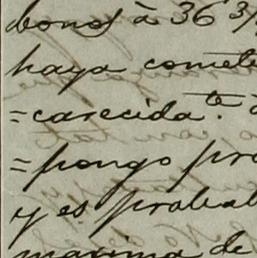 bonos à 36 3/
haya comet
=carecida.te
=pongo pro
y es probab
maxima de